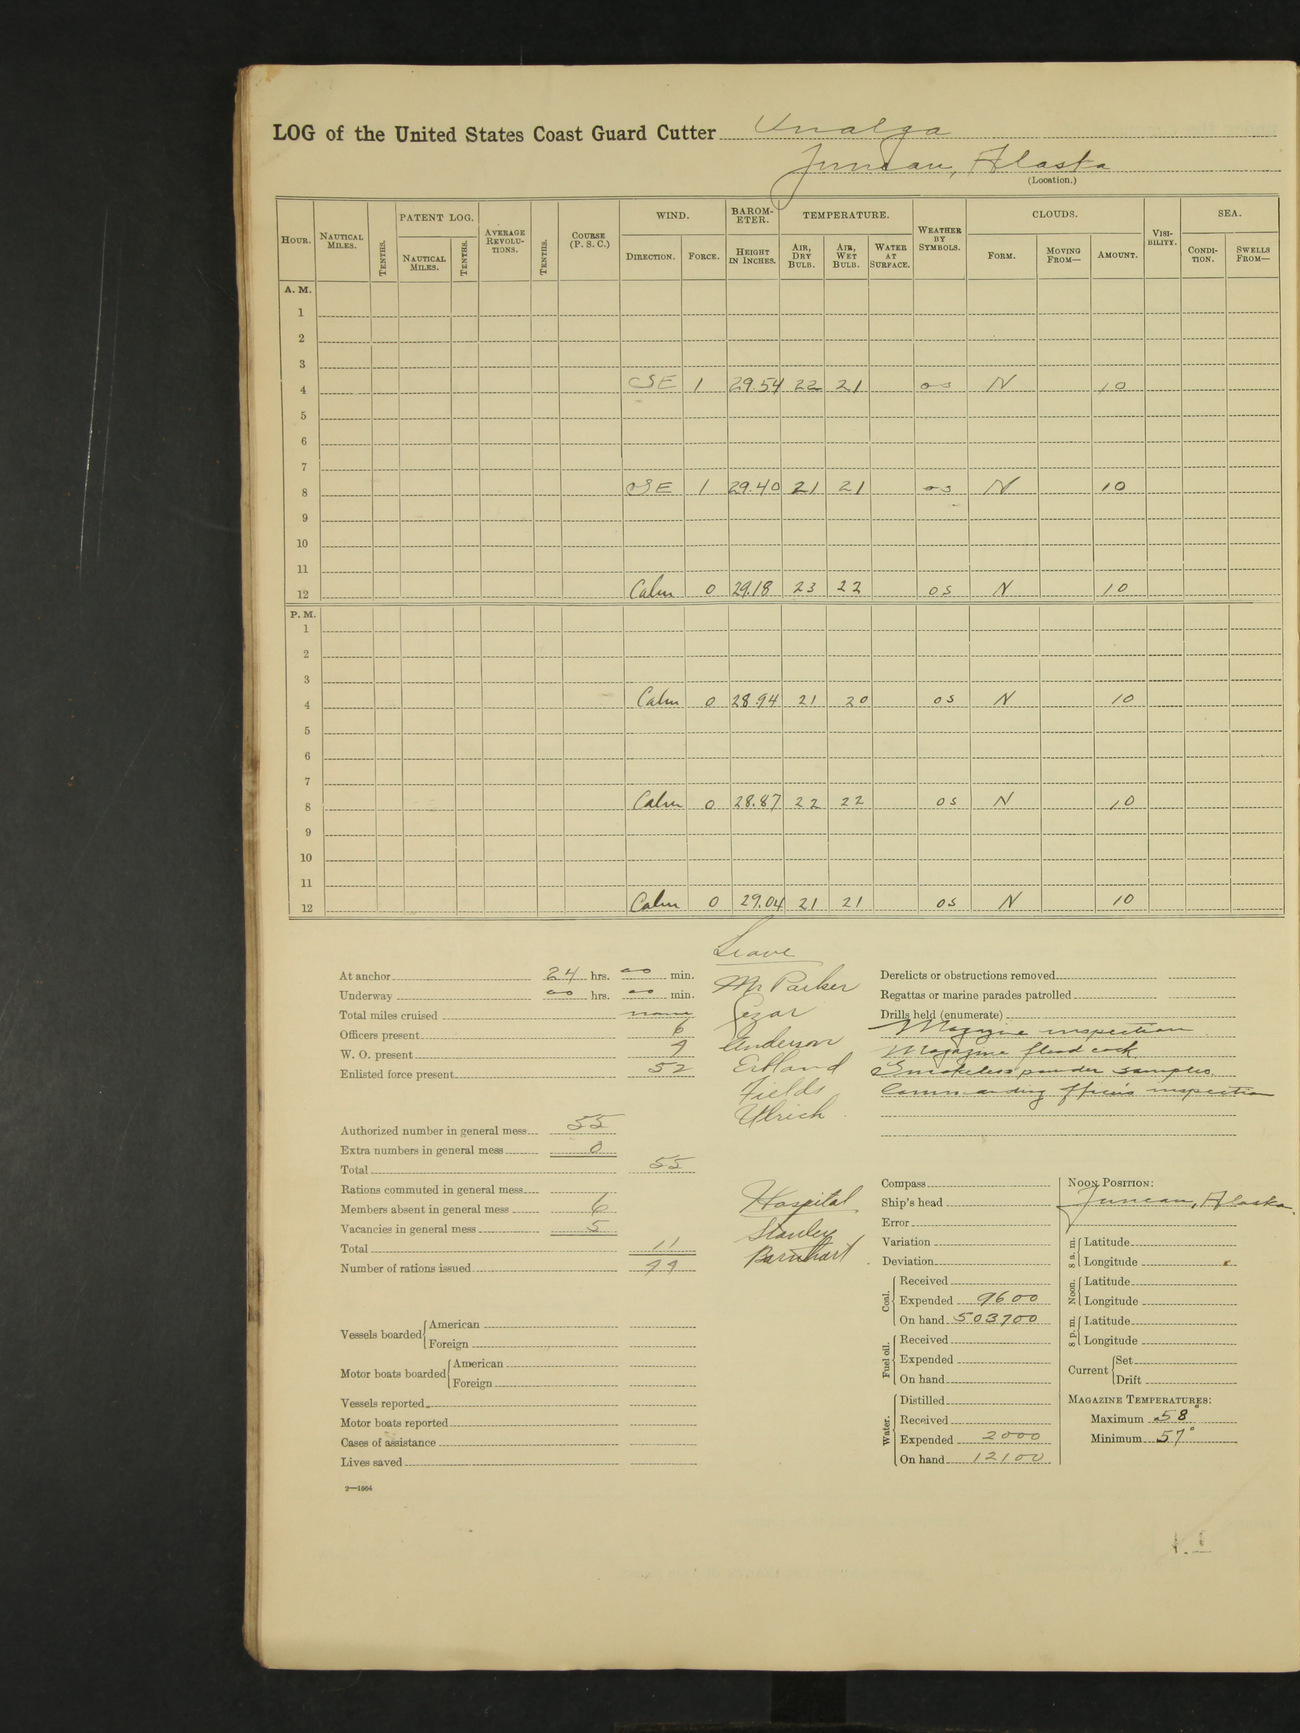 LOG of the United States Coast Guard Cutter Unalga
Juneau, Alaska
(Location.)
HOUR. NAUTICAL MILES. TENTHS. PATENT LOG. NAUTICAL MILES. TENTHS. AVERAGE REVOLUTIONS. TENTHS. COURSE (P. S. C.) WIND. DIRECTION. FORCE. BAROMETER. HEIGHT IN INCHES. TEMPERATURE. AIR, DRY BULB. AIR, WET BULB. WATER AT SURFACE. WEATHER BY SYMBOLS. CLOUDS. FORM. MOVING FROM— AMOUNT. VISIBILITY. SEA. CONDITION. SWELLS FROM—
A. M.
1
2
3
4 SE 1 29.54 22 21 os N 10
5
6
7
8 SE 1 29.40 21 21 os N 10
9
10
11
12 Calm 0 29.18 23 22 os N 10
P. M.
1
2
3
4 Calm 0 28.94 21 20 os N 10
5
6
7
8 Calm 0 28.87 22 22 os N 10
9
10
11
12 Calm 0 29.04 21 21 os N 10
At anchor 24 hrs. 00 min.
Underway 00 hrs. 00 min.
Total miles cruised none
Officers present 6
W. O. present 4
Enlisted force present 52
Authorized number in general mess 55
Extra numbers in general mess 0
Total 55
Rations commuted in general mess
Members absent in general mess 6
Vacancies in general mess 5
Total 11
Number of rations issued 44
Vessels boarded American
Foreign
Motor boats boarded American
Foreign
Vessels reported
Motor boats reported
Cases of assistance
Lives saved
2—1664
Leave
Mr Parker
Anderson
Fields
Ulrich
Hospital
Stanley
Barnhart
Derelicts or obstructions removed
Regattas or marine parades patrolled
Drills held (enumerate)
Magazine inspection
Magazine flood cock
Smokeless powder samples
Commanding officer's inspection
Compass
Ship's head
Error
Variation
Deviation
Coal. Received
Expended 9600
On hand 503700
Fuel oil. Received
Expended
On hand
Water. Distilled
Received
Expended 2000
On hand 12100
NOON POSITION:
Juneau, Alaska.
8 a. m. Latitude
Longitude
Noon. Latitude
Longitude
8 p. m. Latitude
Longitude
Current Set
Drift
MAGAZINE TEMPERATURES:
Maximum 58°
Minimum 57°